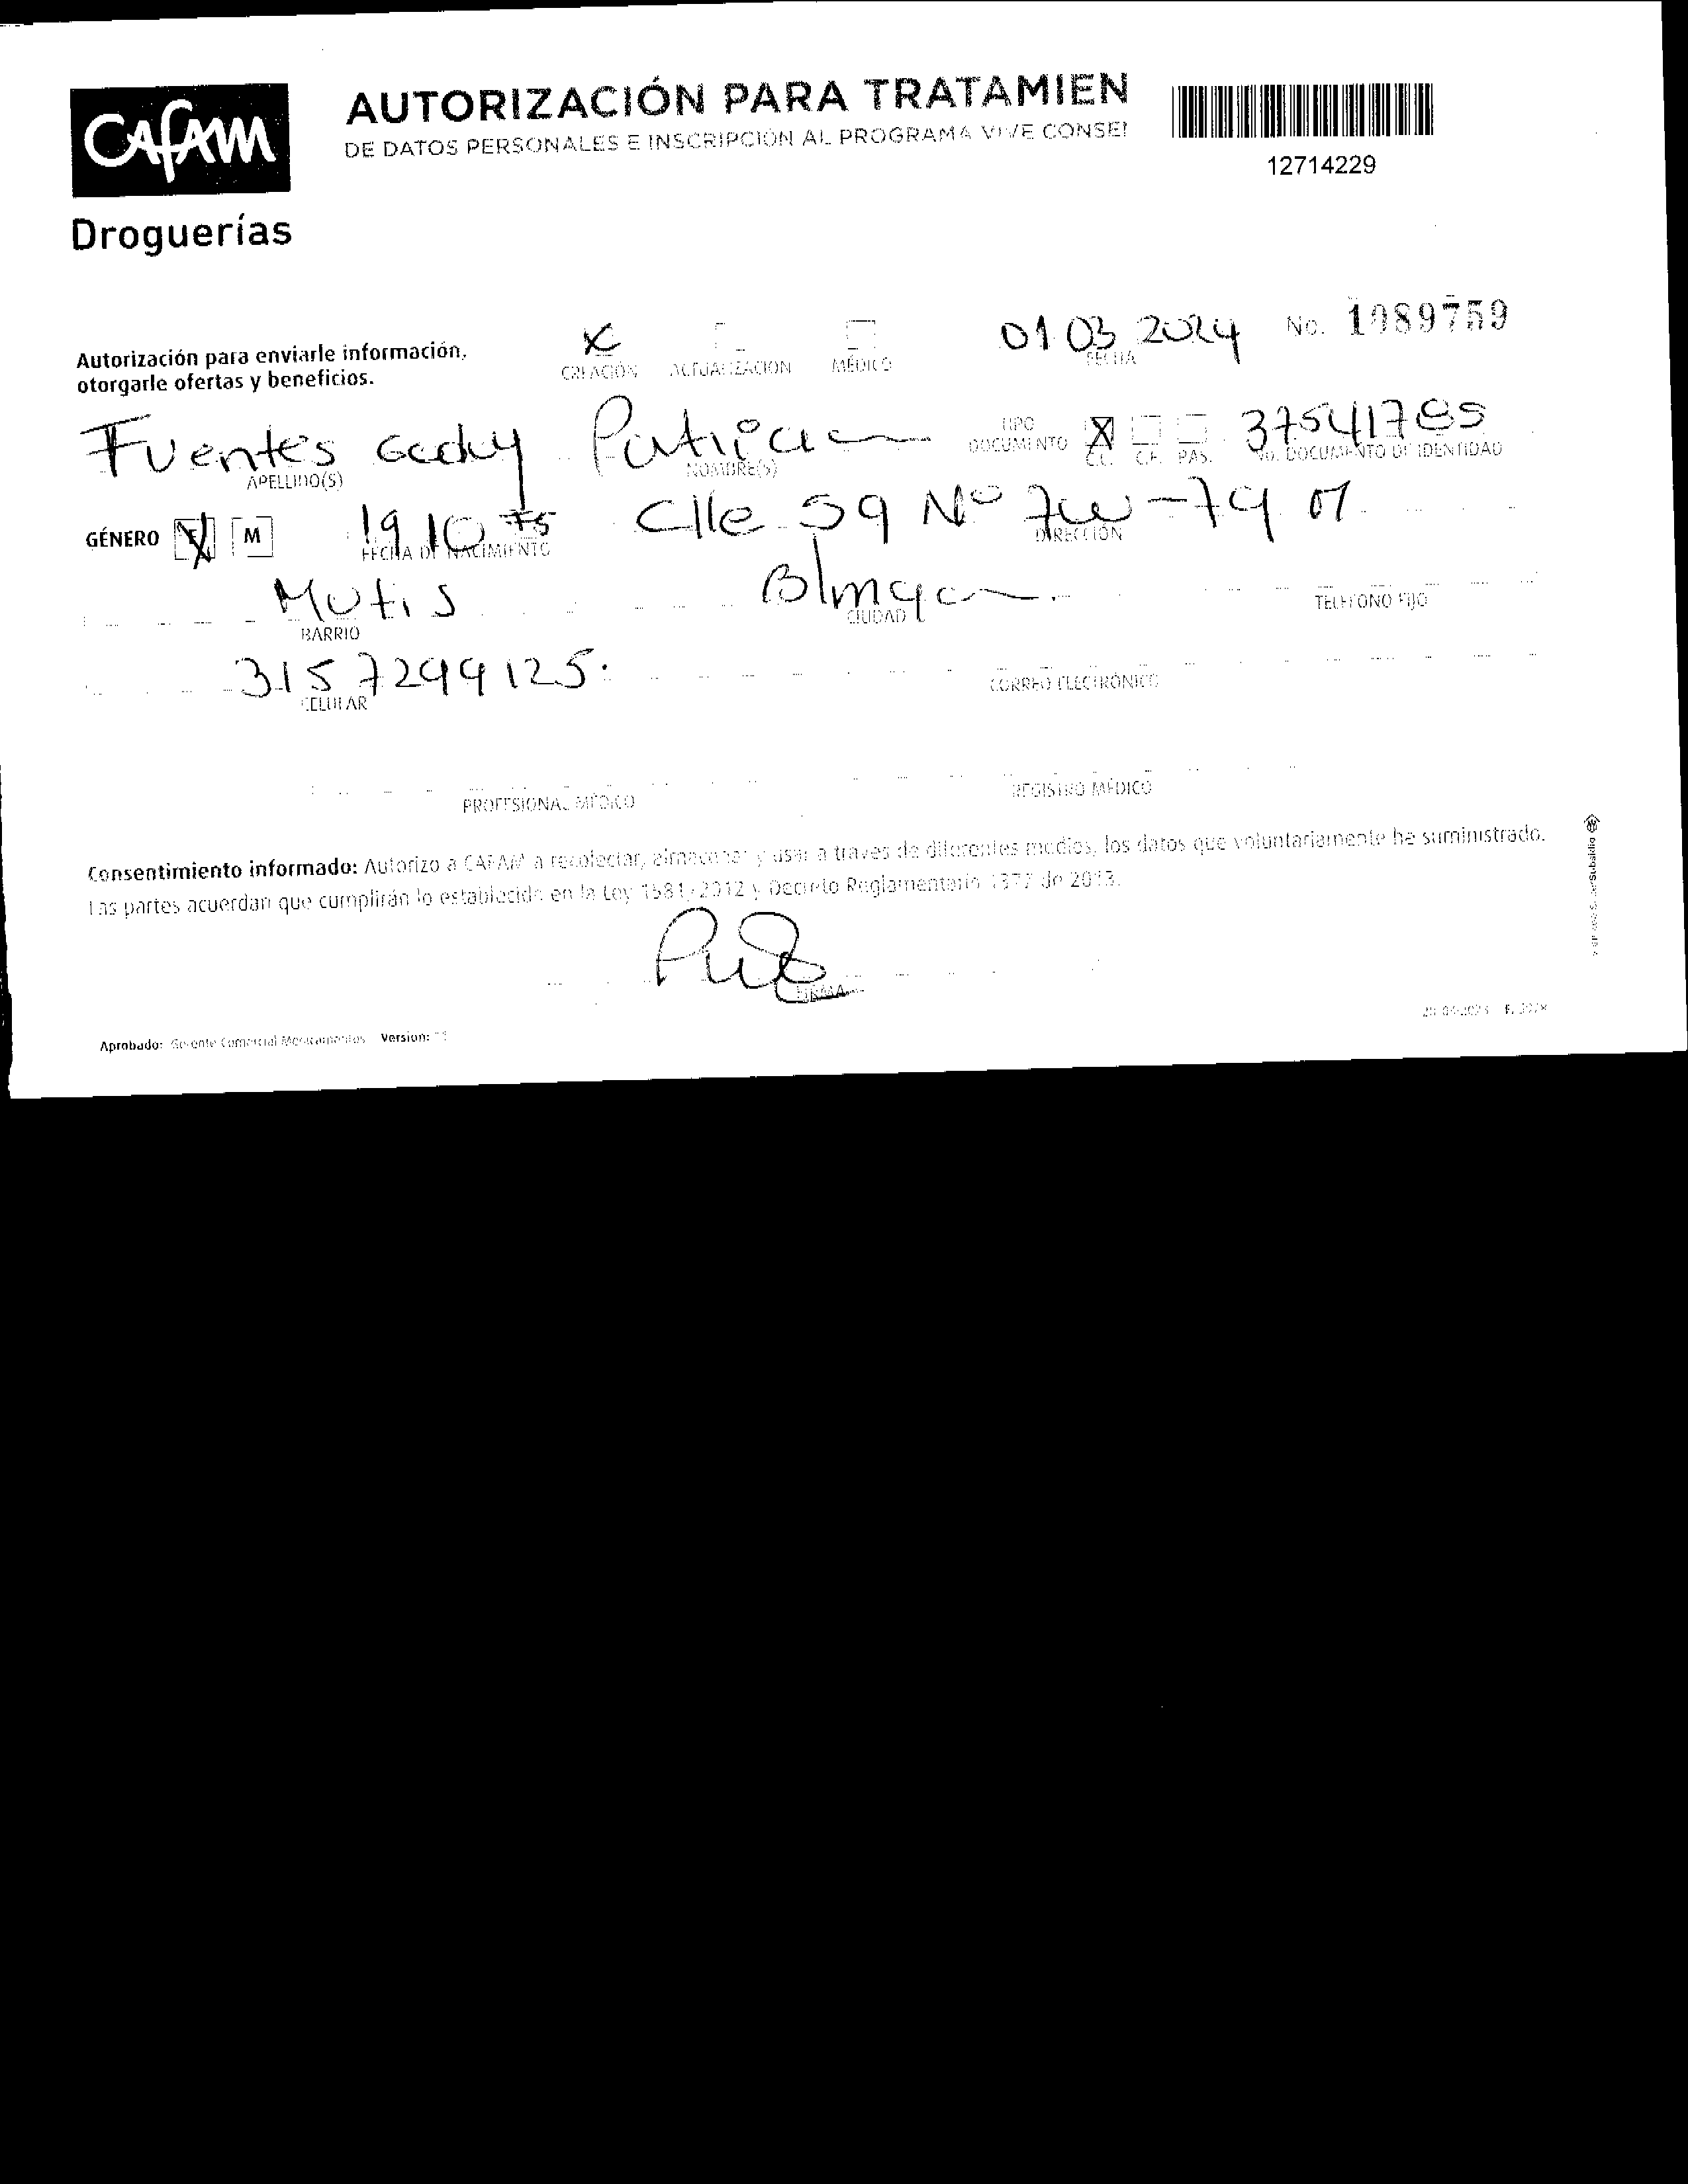 CAFAM
Droguerías
AUTORIZACIÓN PARA TRATAMIEN
DE DATOS PERSONALES E INSCRIPCIÓN AL PROGRAMA VIVE CONSE
12714229
Autorización para enviarle información,
otorgarle ofertas y beneficios.
X
CREACIÓN ACTUALIZACIÓN MÉDICO
01 03 2024
FECHA
No. 1989759
Fuentes Patricia
APELLIDO(S) NOMBRE(S)
TIPO
DOCUMENTO
X
C.C. C.E. PAS.
37541785
No. DOCUMENTO DE IDENTIDAD
GÉNERO F M
19 10 75
FECHA DE NACIMIENTO
Clle 59 Nº 7w-79 01
DIRECCIÓN
Mutis
BARRIO
Blmga
CIUDAD
TELÉFONO FIJO
3157299125.
CELULAR
CORREO ELECTRÓNICO
PROFESIONAL MÉDICO
REGISTRO MÉDICO
Consentimiento informado: Autorizo a CAFAM a recolectar, almacenar y usar a traves de diferentes medios, los datos que voluntariamente he suministrado.
Las partes acuerdan que cumplirán lo establecido en la Ley 1581/2012 y Decreto Reglamentario 1377 de 2013.
FIRMA
Aprobado: Gerente Comercial Medicamentos Version: